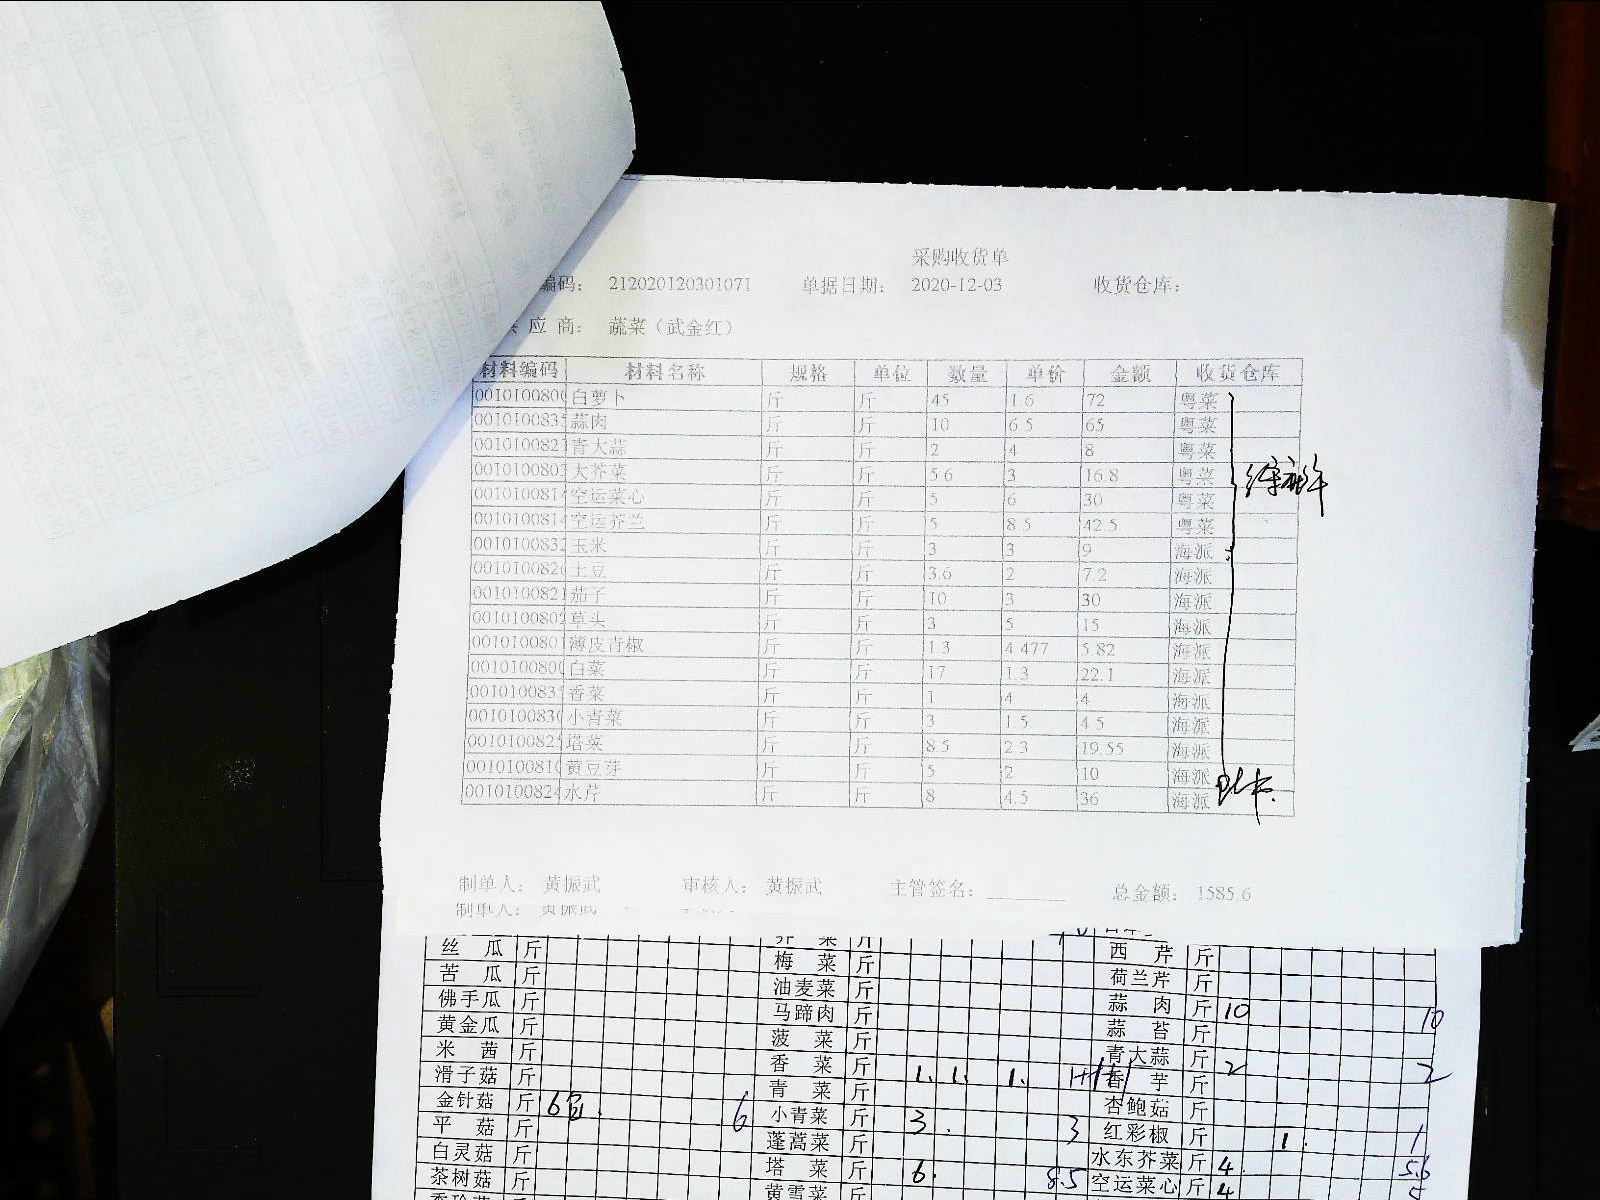 采购收货单
编码： 212020120301071 单据日期： 2020-12-03 收货仓库：
应 商： 蔬菜（武金红）
材料编码 材料名称 规格 单位 数量 单价 金额 收货仓库
001010080 白萝卜 斤 斤 45 1.6 72 粤菜
0010100835 蒜肉 斤 斤 10 6.5 65 粤菜
0010100821 青大蒜 斤 斤 2 4 8 粤菜
0010100803 大芥菜 斤 斤 5.6 3 16.8 粤菜
0010100814 空运菜心 斤 斤 5 6 30 粤菜
0010100814 空运芥兰 斤 斤 5 8.5 42.5 粤菜
0010100832 玉米 斤 斤 3 3 9 海派
001010082 土豆 斤 斤 3.6 2 7.2 海派
0010100821 茄子 斤 斤 10 3 30 海派
0010100802 草头 斤 斤 3 5 15 海派
0010100801 薄皮青椒 斤 斤 1.3 4.477 5.82 海派
001010080 白菜 斤 斤 17 1.3 22.1 海派
0010100835 香菜 斤 斤 1 4 4 海派
001010083 小青菜 斤 斤 3 1.5 4.5 海派
0010100825 塔菜 斤 斤 8.5 2.3 19.55 海派
001010081 黄豆芽 斤 斤 5 2 10 海派
0010100824 水芹 斤 斤 8 4.5 36 海派
制单人： 黄振武 审核人： 黄振武 主管签名： 总金额： 1585.6
制单人： 黄振武
丝瓜 斤 芥菜 斤 西芹 斤
苦瓜 斤 梅菜 斤 荷兰芹 斤
佛手瓜 斤 油麦菜 斤 蒜肉 斤 10 10
黄金瓜 斤 马蹄肉 斤 蒜苔 斤
米茜 斤 菠菜 斤 青大蒜 斤 2 2
滑子菇 斤 香菜 斤 1. 1. 1. 香芋 斤
金针菇 斤 6 6 青菜 斤 杏鲍菇 斤
平菇 斤 小青菜 斤 3. 3 红彩椒 斤 1. 1
白灵菇 斤 蓬蒿菜 斤 水东芥菜 斤 4 5.6
茶树菇 斤 塔菜 斤 6. 8.5 空运菜心 斤 4 5
黄雪菜 斤